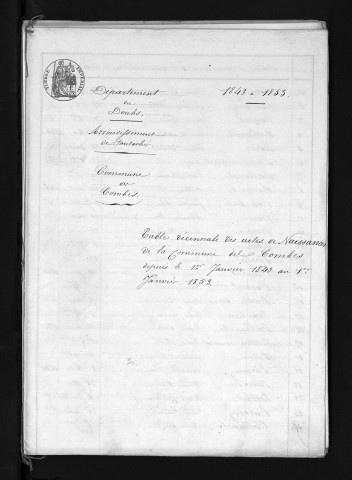 TIMBRE IMPÉRIAL
1843 à 1853.
Département
du
Doubs.
Arrondissement
de Pontarlier
Commune
de
Combes.
Table décennale des actes de Naissances
de la Commune des Combes
depuis le 1er Janvier 1843 au 1er
Janvier 1853.